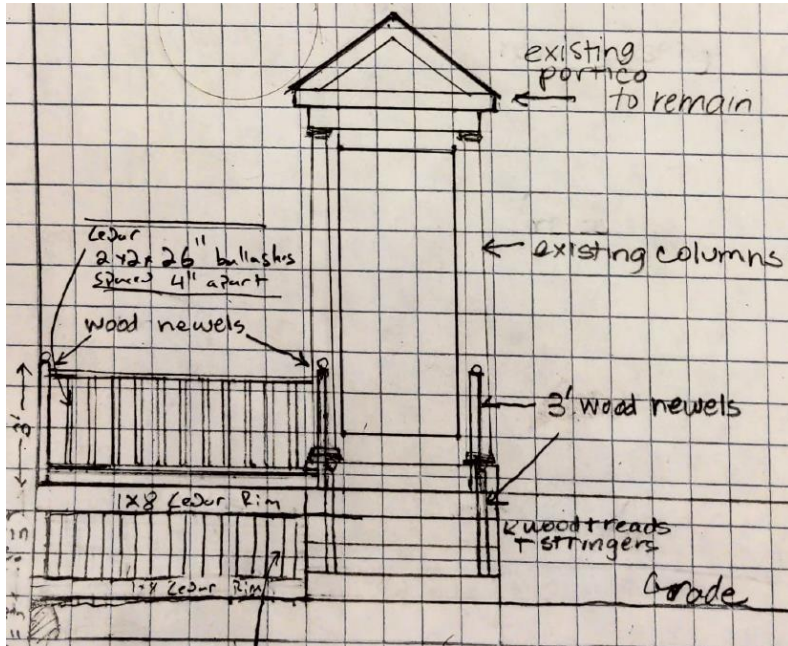 existing
portico
to remain
Cedar
2x2x26" ballashes
Spaced 4" apart
existing columns
wood newels
3'
3' wood newels
1x8 Cedar Rim
wood treads
+ stringers
1x8 Cedar Rim
Grade